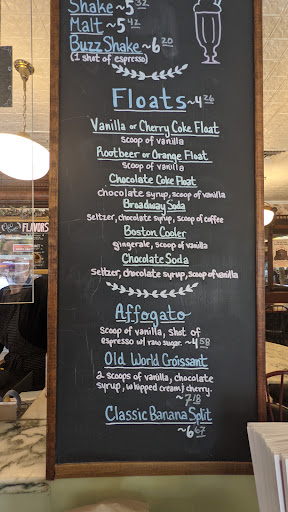 Shake ~ 5 32
Malt ~ 5 42
Buzz Shake ~ 6 20
(1 shot of espresso)
Floats ~ 4 26
Vanilla or Cherry Coke Float
scoop of vanilla
Rootbeer or Orange Float
scoop of vanilla
Chocolate Coke Float
chocolate syrup, scoop of vanilla
Broadway Soda
seltzer, chocolate syrup, scoop of coffee
Boston Cooler
gingerale, scoop of vanilla
Chocolate Soda
seltzer, chocolate syrup, scoop of vanilla
Affogato
scoop of vanilla, shot of
espresso w/ raw sugar ~ 4 58
Old World Croissant
2 scoops of vanilla, chocolate
syrup, whipped cream & cherry.
~ 7 18
Classic Banana Split
~ 6 67
FLAVORS